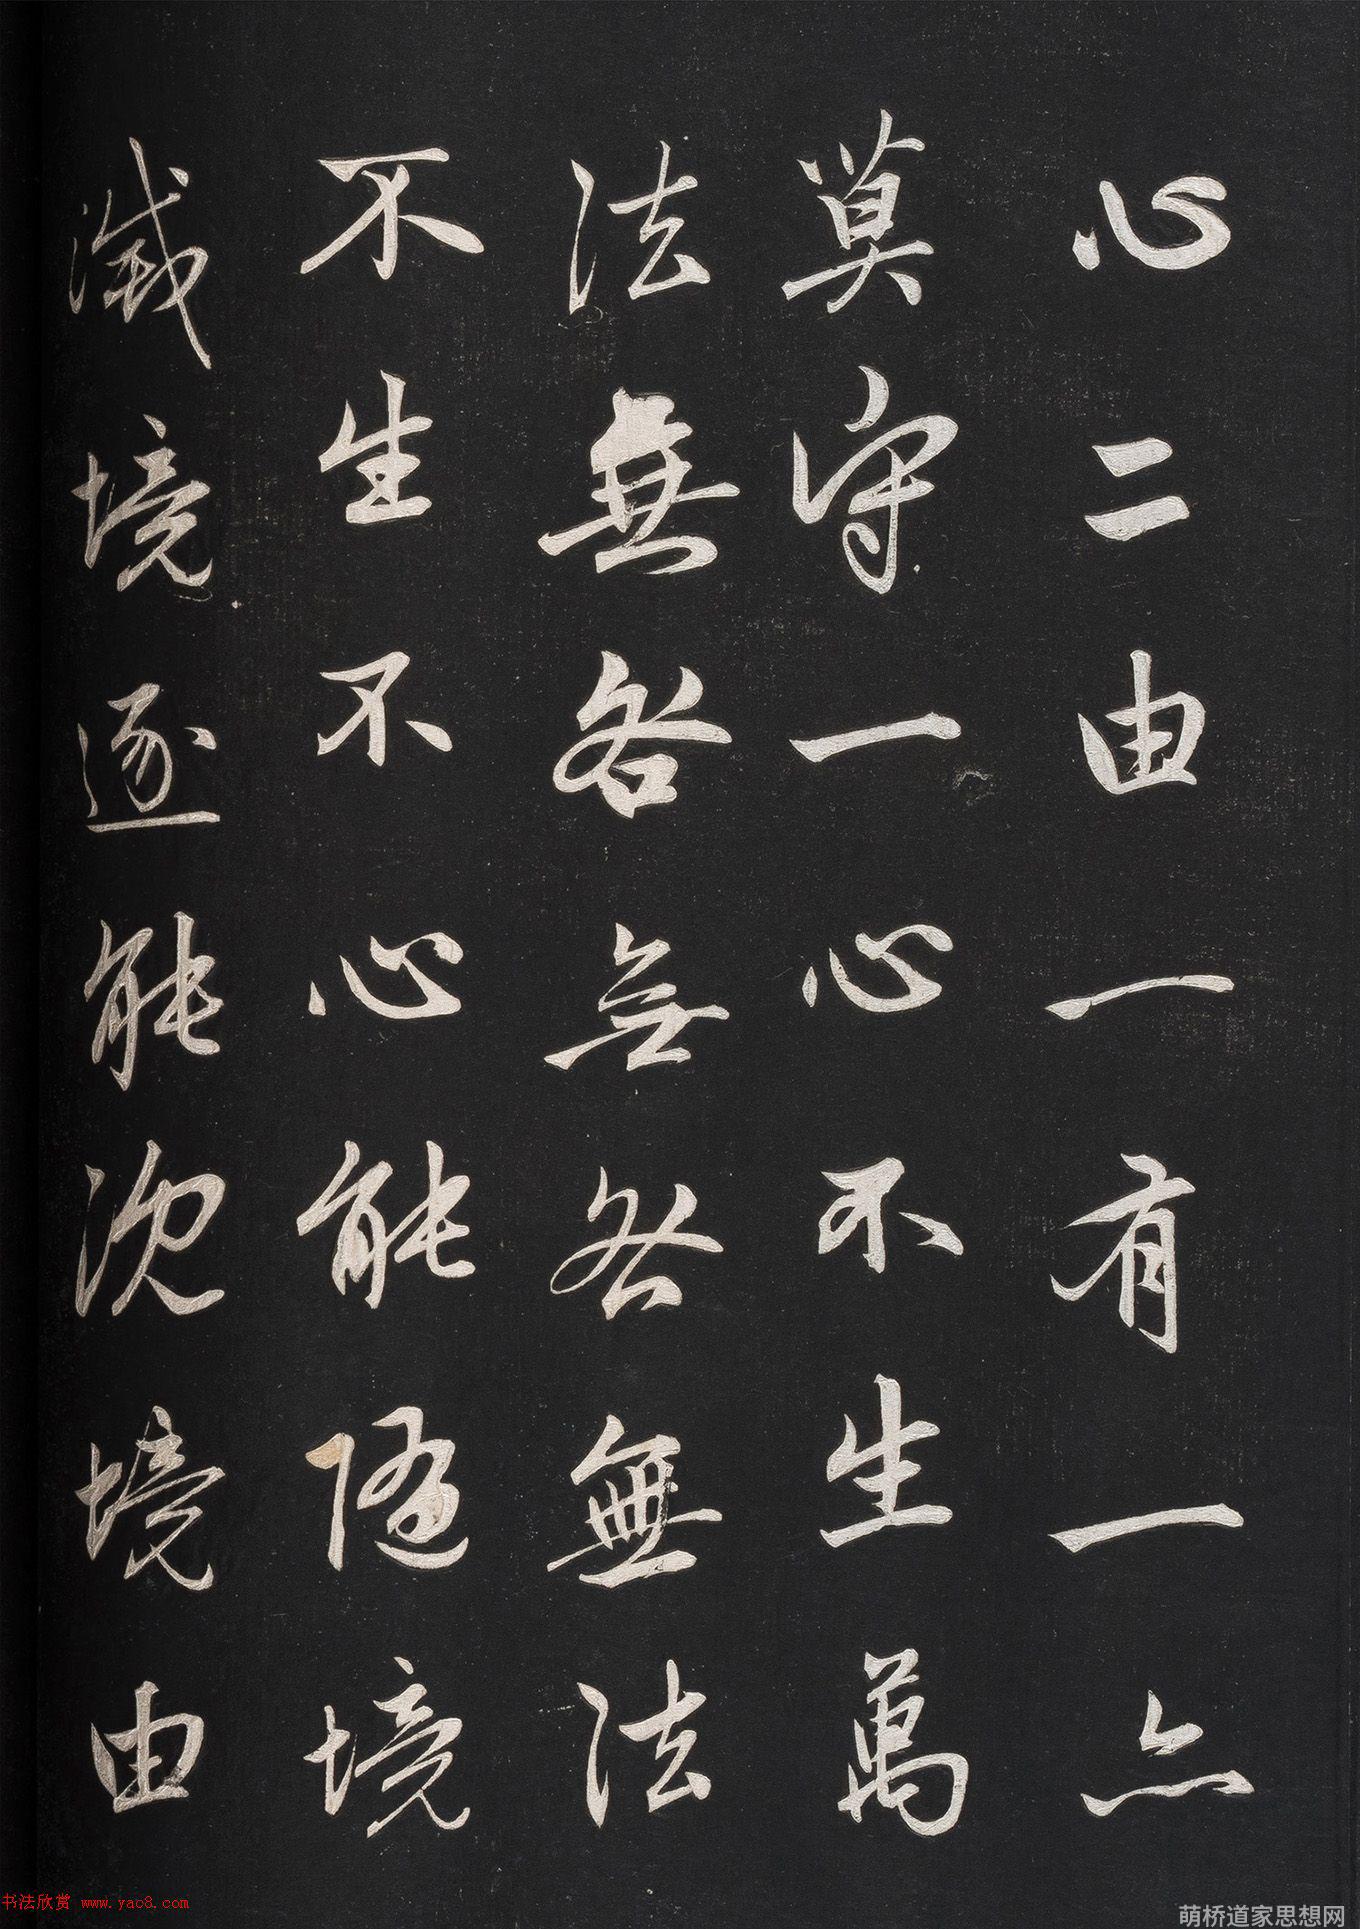 心二由一有一亦
莫守一心不生萬
法無咎無咎無法
不生不心能隨境
滅境逐能沉境由
书法欣赏 www.yac8.com
萌桥道家思想网